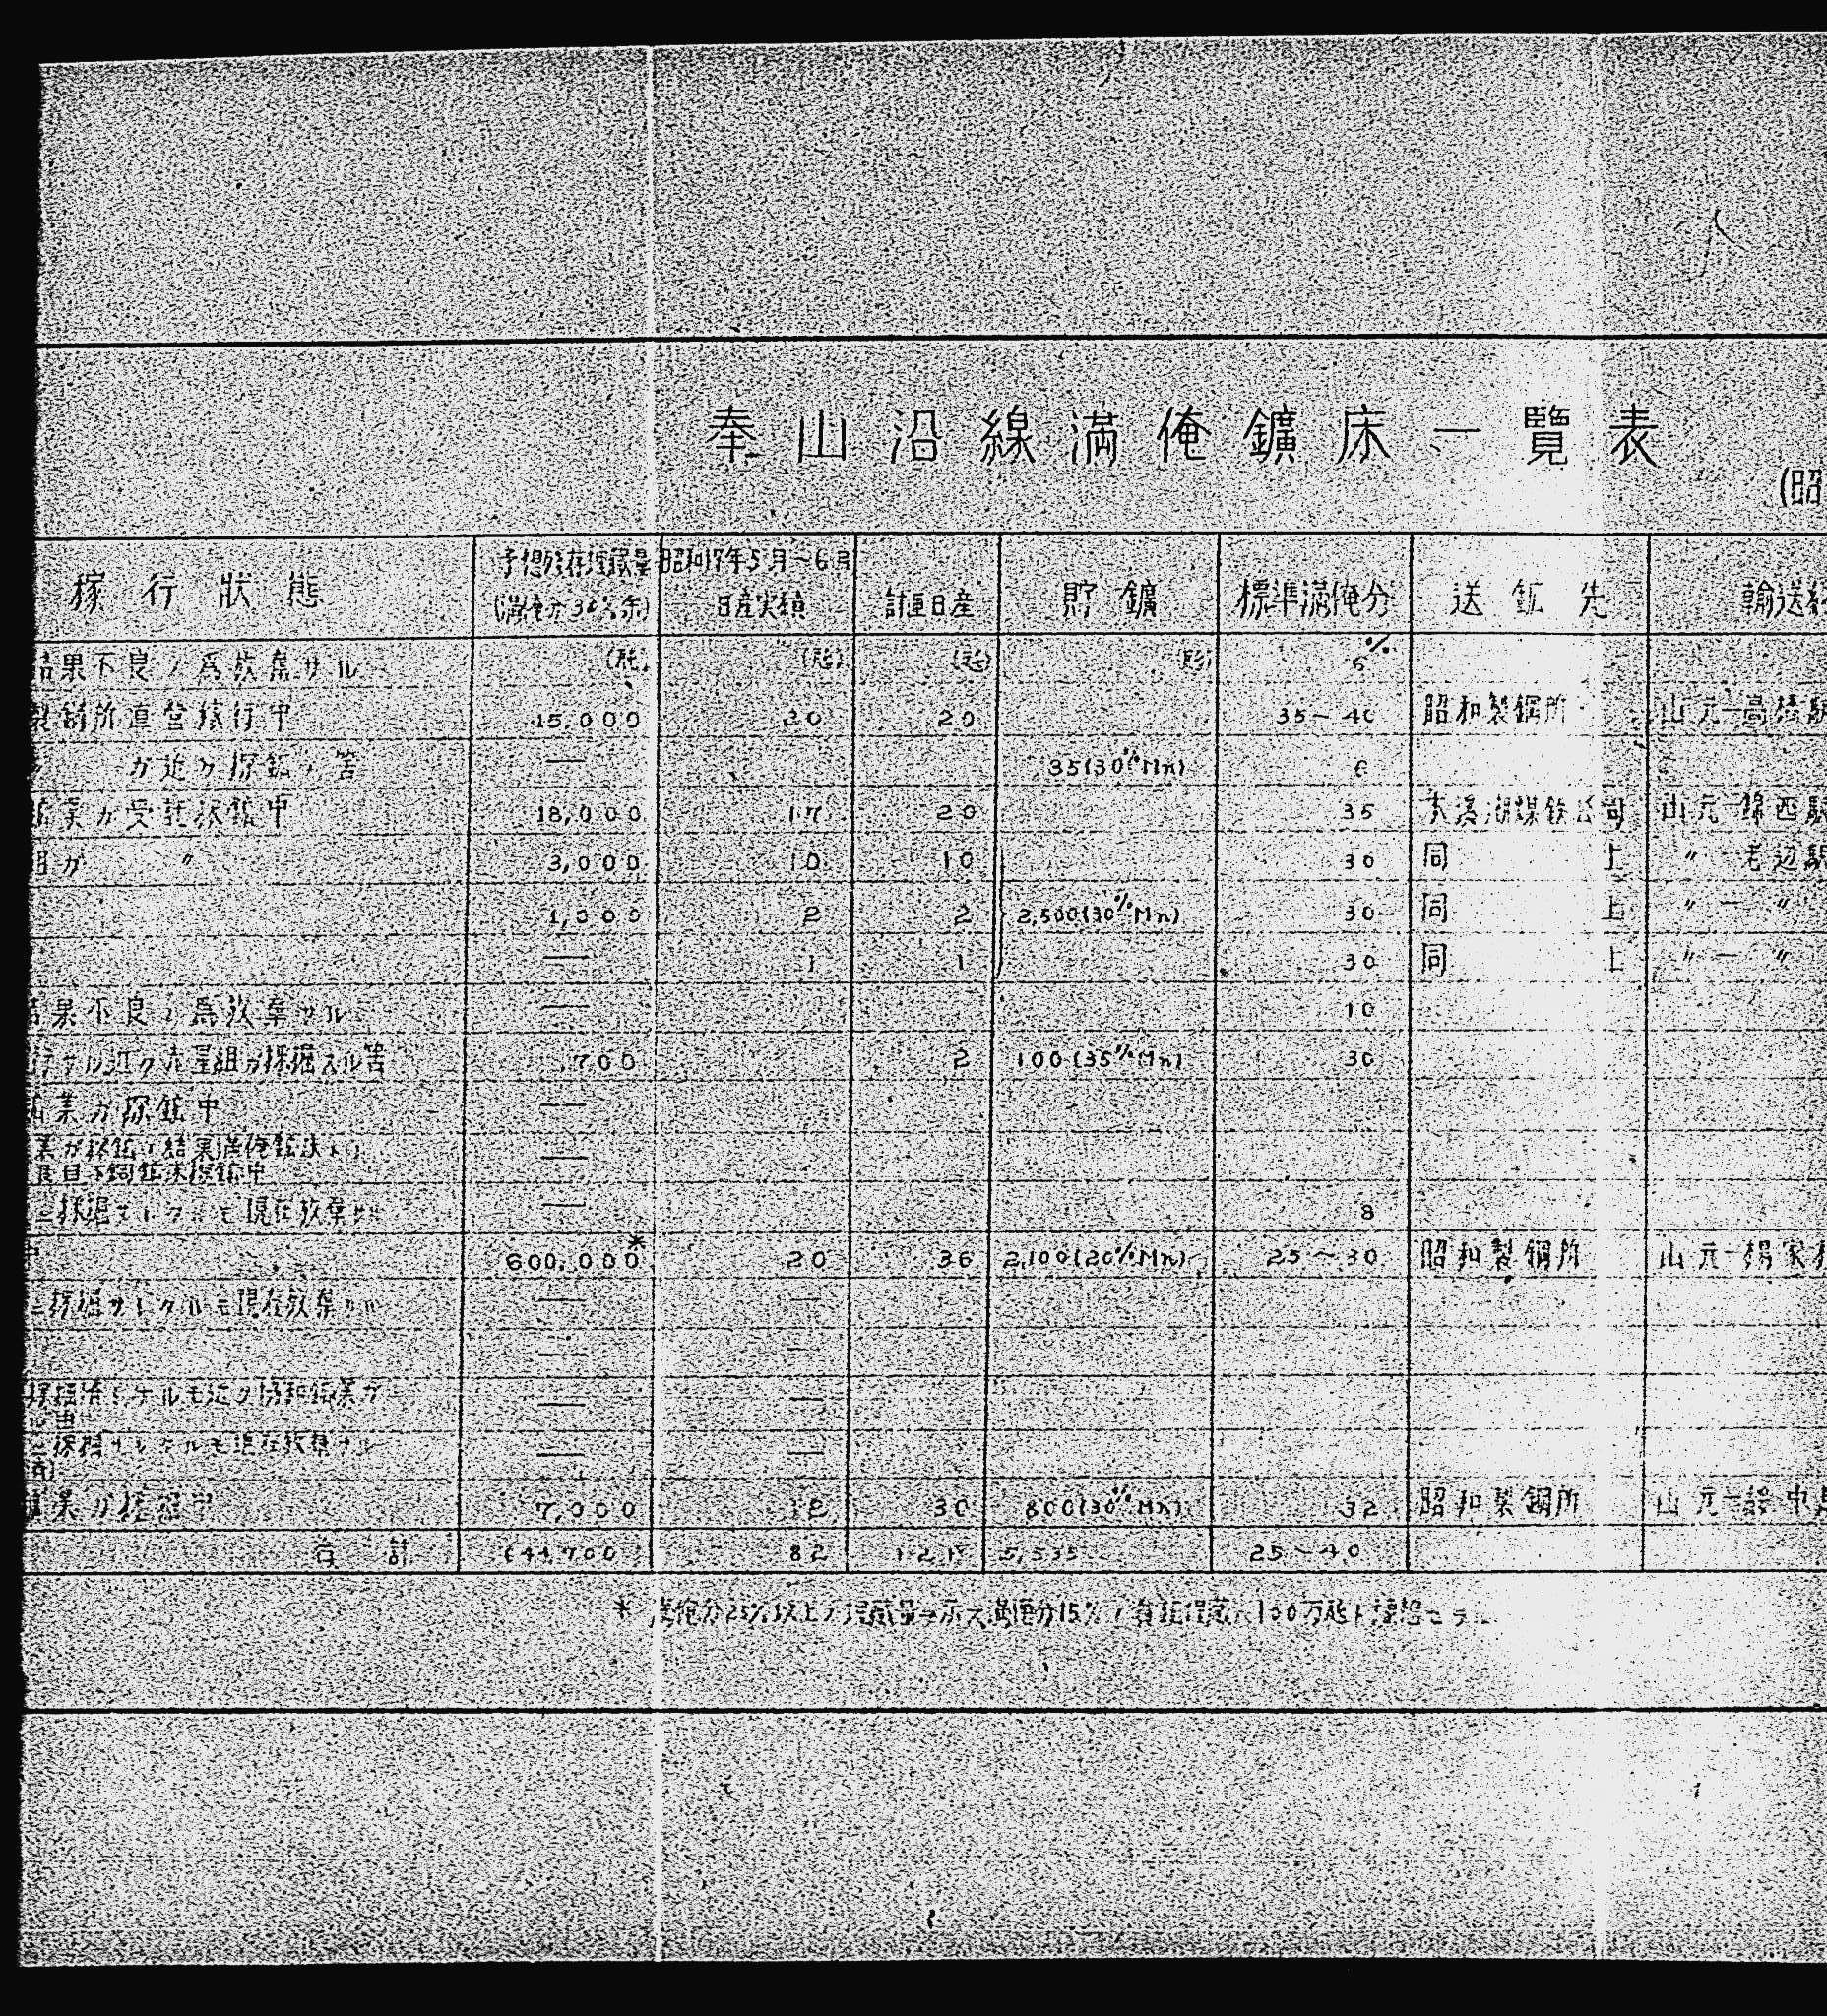 奉山沿線満俺鑛床一覽表
(昭
稼行狀態 予想残存埋蔵量(満俺分30%余) 昭和17年5月~6月日産実績 計画日産 貯鑛 標準満俺分 送鉱先 輸送経
結果不良ノ為放棄サル (瓲) (瓲) (瓲) (瓲) % 5
製鋼所直営稼行中 15,000 20 20 35~40 昭和製鋼所 山元―高橋駅
ガ近ク探鉱ノ筈 — 35(30%Mn) 6
鉱業ガ受託採鉱中 18,000 17 20 35 本溪湖煤鉄公司 山元―錦西駅
組ガ 〃 3,000 10 10 30 同上 〃 老辺駅
1,000 2 2 2,500(30%Mn) 30 同上 〃―〃
— 1 1 30 同上 〃―〃
結果不良ノ為放棄サル — 10
行サル近ク赤星組ガ採掘スル筈 700 2 100(35%Mn) 30
鉱業ガ探鉱中 —
業ガ探鉱ノ結果満俺鉱床
目下銅鉱床探鉱中 —
ニ採掘サレタルモ現在放棄サル — 8
中 600,000* 20 36 2,100(20%Mn) 25~30 昭和製鋼所 山元―楊家
ニ採掘サレタルモ現在放棄サル — —
— —
採掘 ルモ近ク協和鉱業ガ — —
ニ採掘サレタルモ現在放棄サレ — —
鉱業ガ採掘中 7,000 12 30 800(30%Mn) 32 昭和製鋼所 山元―
合計 644,700 82 121 5,535 25~40
* 満俺分25%以上ノ埋蔵量ヲ示ス満俺分15%ノ 埋蔵ハ100万瓲ト